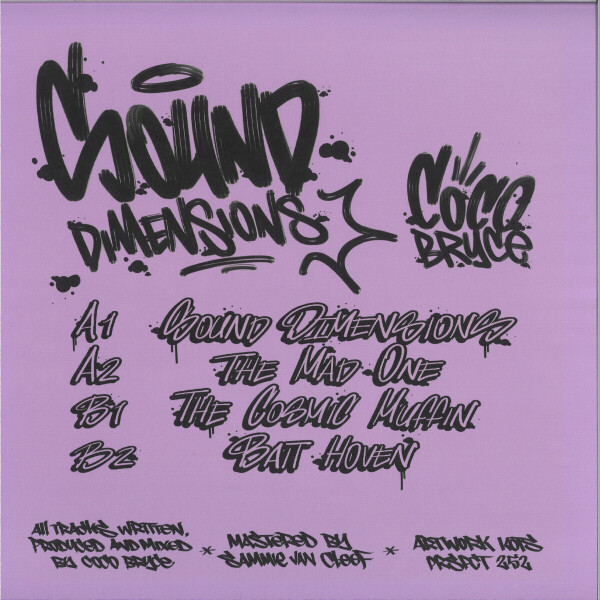 SOUND
DIMENSIONS
COCO
BRYCE
A1 SOUND DIMENSIONS
A2 THE MAD ONE
B1 THE COSMIC MUFFIN
B2 BAT HOVEN
All TRACKS WRITTEN,
PRODUCED AND MIXED
BY COCO BRYCE
*
MASTERED BY
SAMMIE VAN CLEEF
*
ARTWORK KOTS
PRSPCT 252